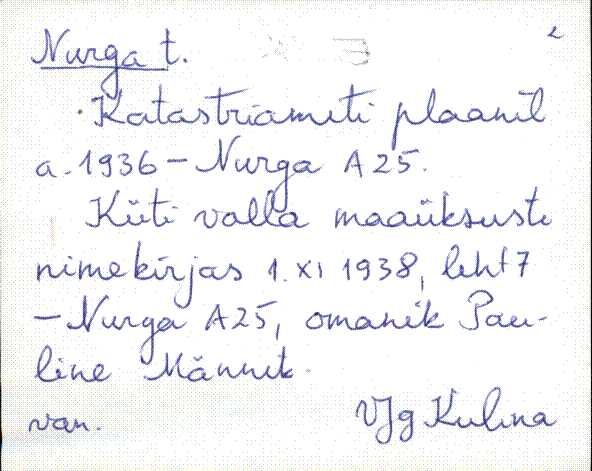 2
Nurga t.
Katastriameti plaanil
a. 1936 – Nurga A 25.
Küti valla maaüksuste
nimekirjas 1. XI 1938, leht 7
– Nurga A25, omanik Pau-
line Männik.
van.
VJg Kulina